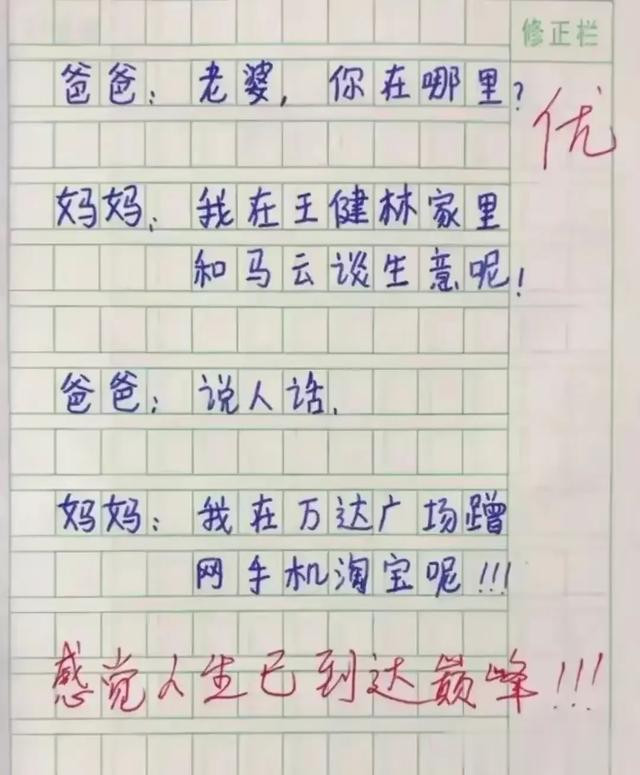 修正栏
爸爸：老婆，你在哪里？
优
妈妈：我在王健林家里
和马云谈生意呢！
爸爸：说人话.
妈妈：我在万达广场蹭
网手机淘宝呢!!!
感觉人生已到达巅峰!!!